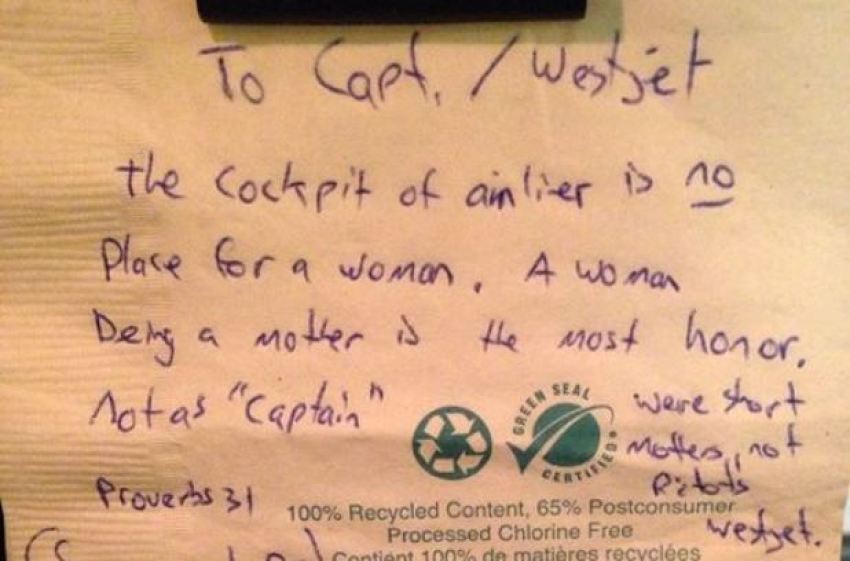 To Capt. / Westjet
the cockpit of airlier is no
Place for a woman. A woman
being a mother is the most honor.
Not as "Captain"
were short
mothers, not
Pilots
westjet.
Proverbs 31
GREEN SEAL
CERTIFIED
100% Recycled Content, 65% Postconsumer
Processed Chlorine Free
Contient 100% de matières recyclées